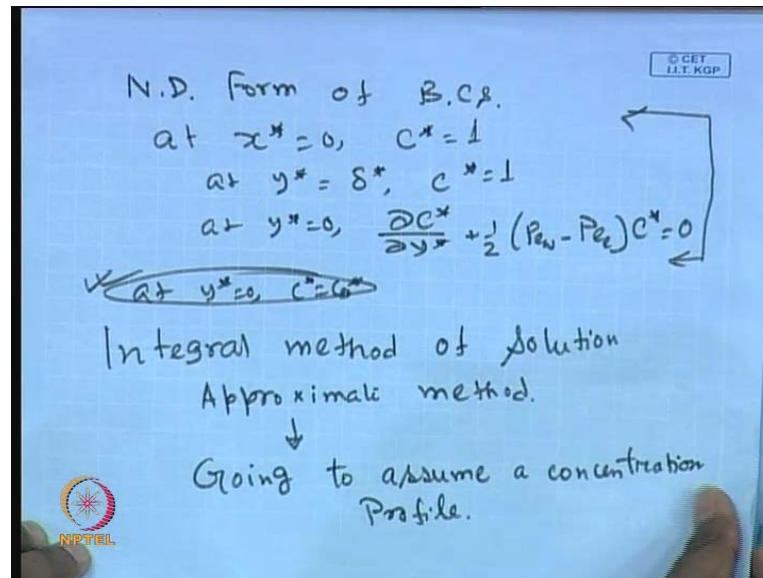 © CET
I.I.T. KGP
N.D. Form of B.C.s.
at x* = 0, C* = 1
at y* = δ*, C* = 1
at y* = 0, ∂C*/∂y* + 1/2 (Pew - Pee) C* = 0
at y* = 0, C* = C0*
Integral method of Solution
Approximate method.
↓
Going to assume a concentration
Profile.
NPTEL